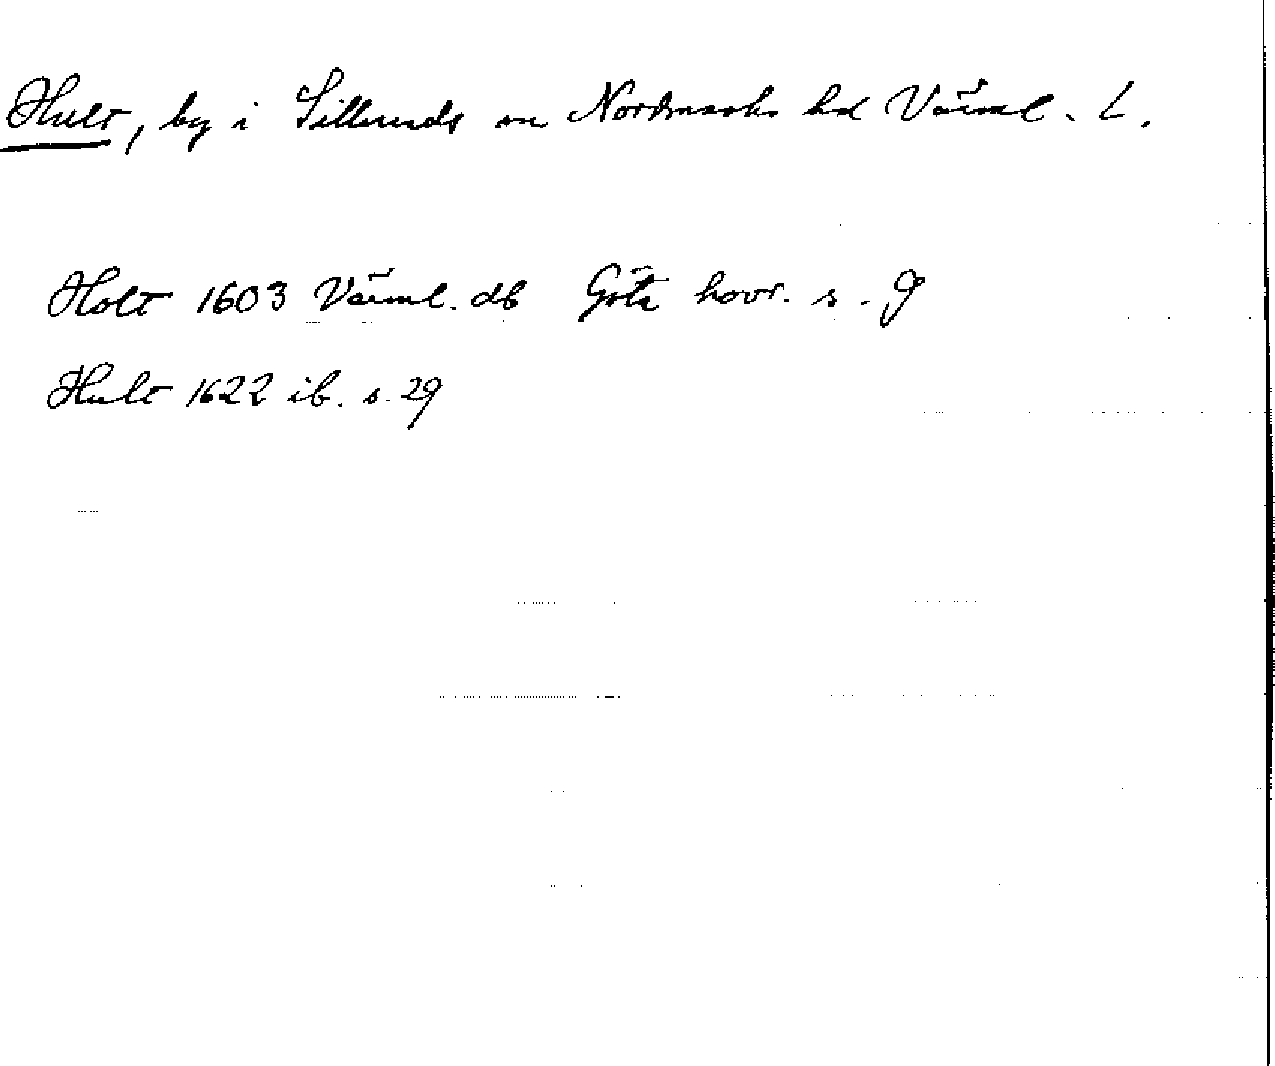 Hult, by i Silleruds sn Nordmarks hd Värml. L.
Holt 1603 Värml. db Göta hovr. s. 9
Hult 1622 ib. s. 29